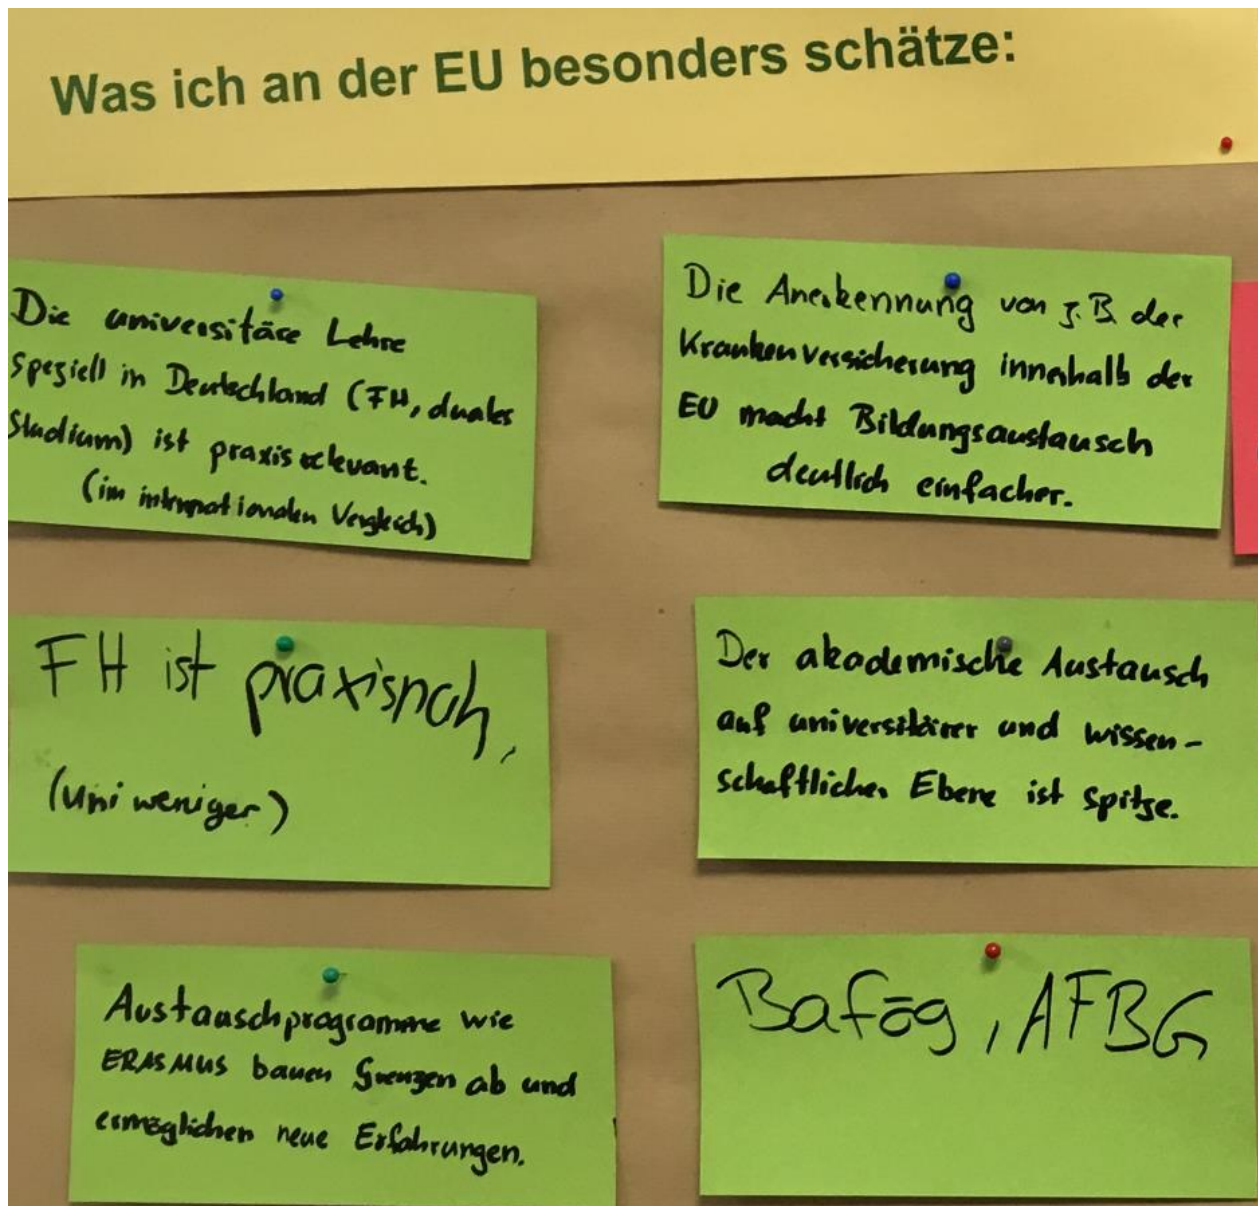 Was ich an der EU besonders schätze:
Die universitäre Lehre
speziell in Deutschland (FH, duales
Studium) ist praxisrelevant.
(im internationalen Vergleich)
Die Anerkennung von z.B. der
Krankenversicherung innerhalb der
EU macht Bildungsaustausch
deutlich einfacher.
FH ist praxisnah,
(uni weniger)
Der akademische Austausch
auf universitärer und wissen-
schaftlicher Ebene ist spitze.
Austauschprogramme wie
ERASMUS bauen Grenzen ab und
ermöglichen neue Erfahrungen.
Bafög, AFBG